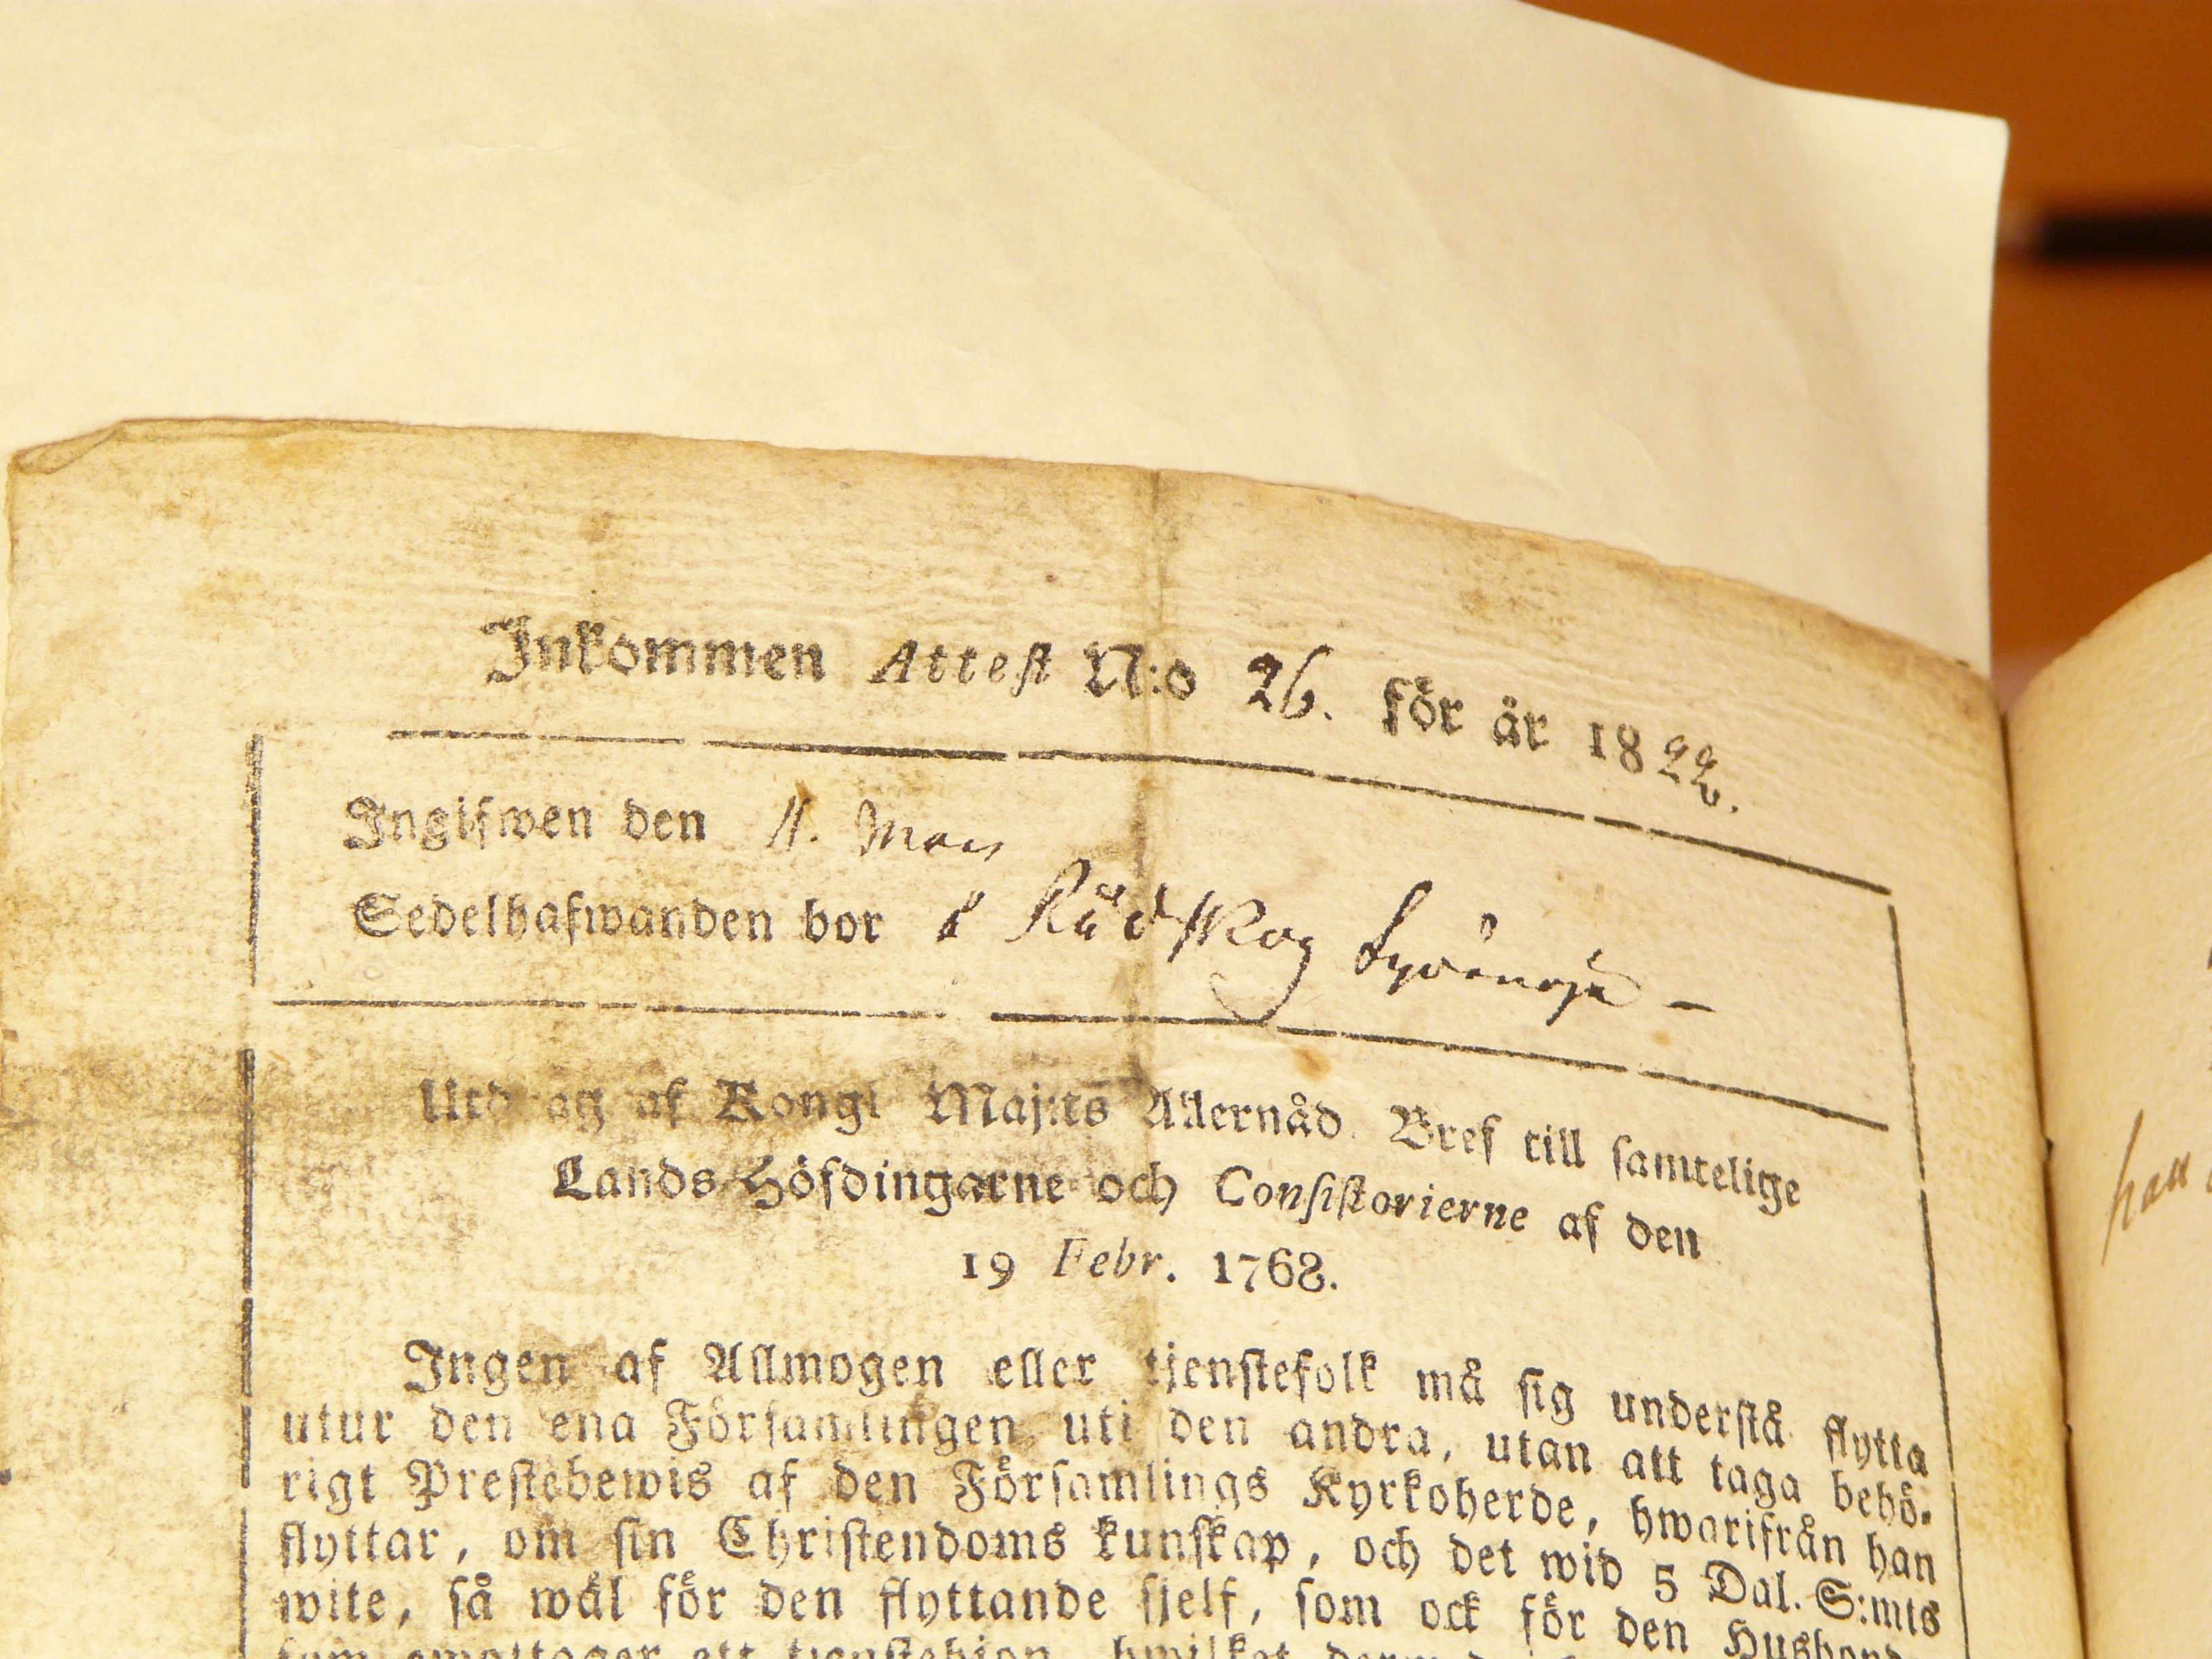 Inkommen Attest N:o 26. för år 1822.
Ingifwen den 11. Mars
Sedelhafwanden bor i Rådskog
Utdrag af Kongl Maj:ts Allernåd. Bref till samtelige
Lands-Höfdingarne och Consistorierne af den
19 Febr. 1768.
Ingen af Allmogen eller tjenstefolk må sig understå flytta
utur den ena Församlingen uti den andra, utan att taga behö-
rigt Prestebewis af den Församlings Kyrkoherde, hwarifrån han
flyttar, om sin Christendoms kunskap, och det wid 5 Dal. S:mts
wite, så wäl för den flyttande sjelf, som ock för den Husbonde
som emottager ett tjenstehjon, hwilket
han